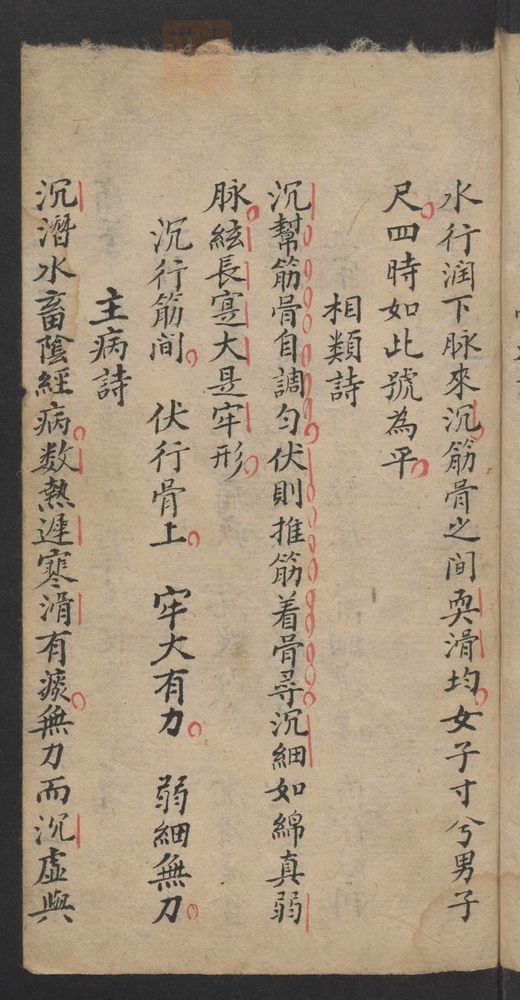 水行润下脉來沉筋骨之间耎滑均女子寸兮男子
尺四時如此號為平
相類詩
沉幫筋骨自調匀伏則推筋着骨尋沉細如綿真弱
脉絃長寔大是牢形
沉行筋间 伏行骨上 牢大有力 弱細無力
主病詩
沉潛水畜陰經病数熱遅寒滑有痰無力而沉虛與